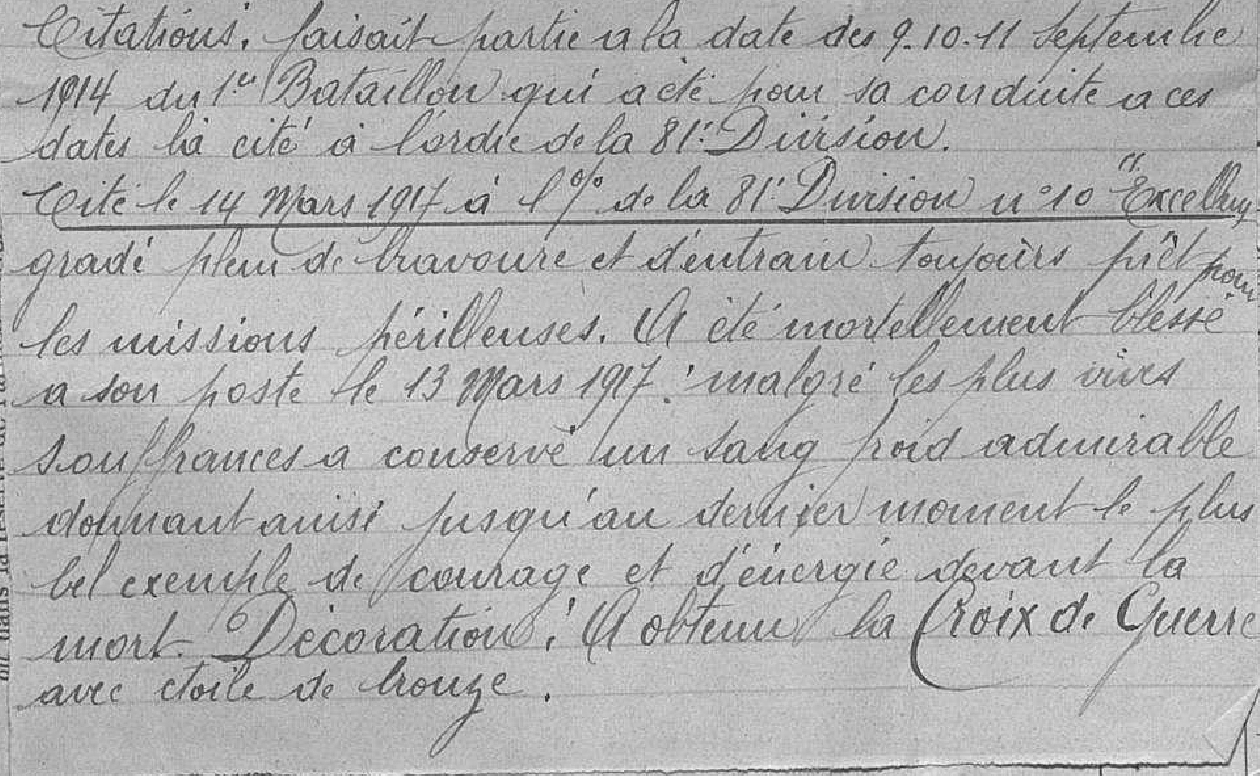 Citations. faisait partie a la date des 9.10.11 Septembre
1914 du 1er Bataillon qui a été pour sa conduite a ces
dates là cité à l'ordre de la 81e Division.
Cité le 14 Mars 1917 à l'o/o de la 81e Division n°10 "Excellent
gradé plein de bravoure et d'entrain toujours prêt pour
les missions périlleuses. A été mortellement blessé
a son poste le 13 Mars 1917. malgré les plus vives
souffrances a conservé un sang froid admirable
donnant ainsi jusqu'au dernier moment le plus
bel exemple de courage et d'énergie devant la
mort. Décoration : A obtenu la Croix de Guerre
avec étoile de bronze.